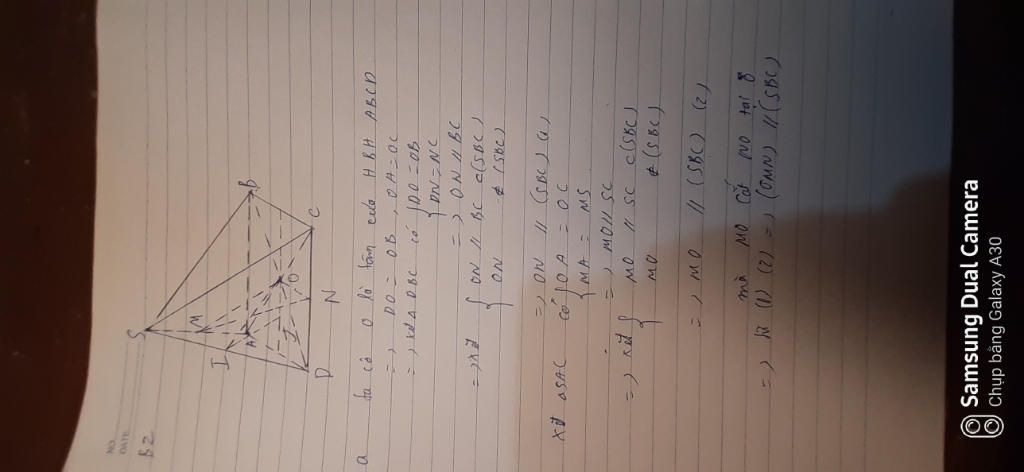 NO.
DATE
B2
S
I
M
A
B
O
J
D
N
C
a ta có O là tâm của HBH ABCD
=> DO = OB, OA = OC
=> xét Δ DBC có { DO = OB
DN = NC
=> ON // BC
=> xét { ON // BC ⊂ (SBC)
ON ⊄ (SBC)
=> ON // (SBC) (1)
xét ΔSAC có { OA = OC
MA = MS
=> MO // SC
=> xét { MO // SC ⊂ (SBC)
MO ⊄ (SBC)
=> MO // (SBC) (2)
mà MO cắt NO tại O
=> từ (1) (2) => (OMN) // (SBC)
Samsung Dual Camera
Chụp bằng Galaxy A30